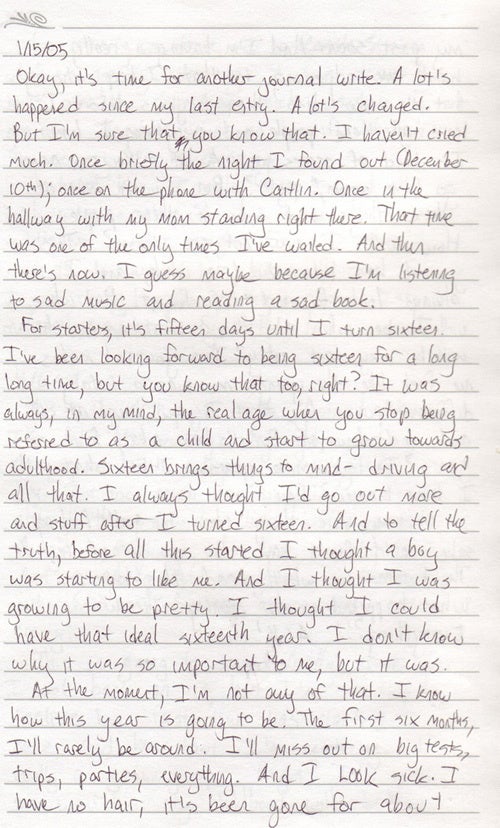 1/15/05
Okay, it's time for another journal write. A lot's
happened since my last entry. A lot's changed.
But I'm sure that you know that. I haven't cried
much. Once briefly the night I found out (December
10th); once on the phone with Caitlin. Once in the
hallway with my mom standing right there. That time
was one of the only times I've wailed. And then
there's now. I guess maybe because I'm listening
to sad music and reading a sad book.
For starters, it's fifteen days until I turn sixteen.
I've been looking forward to being sixteen for a long
long time, but you know that too, right? It was
always, in my mind, the real age when you stop being
referred to as a child and start to grow towards
adulthood. Sixteen brings things to mind- driving and
all that. I always thought I'd go out more
and stuff after I turned sixteen. And to tell the
truth, before all this started I thought a boy
was starting to like me. And I thought I was
growing to be pretty. I thought I could
have that ideal sixteenth year. I don't know
why it was so important to me, but it was.
At the moment, I'm not any of that. I know
how this year is going to be. The first six months,
I'll rarely be around. I'll miss out on big tests,
trips, parties, everything. And I LOOK sick. I
have no hair, it's been gone for about